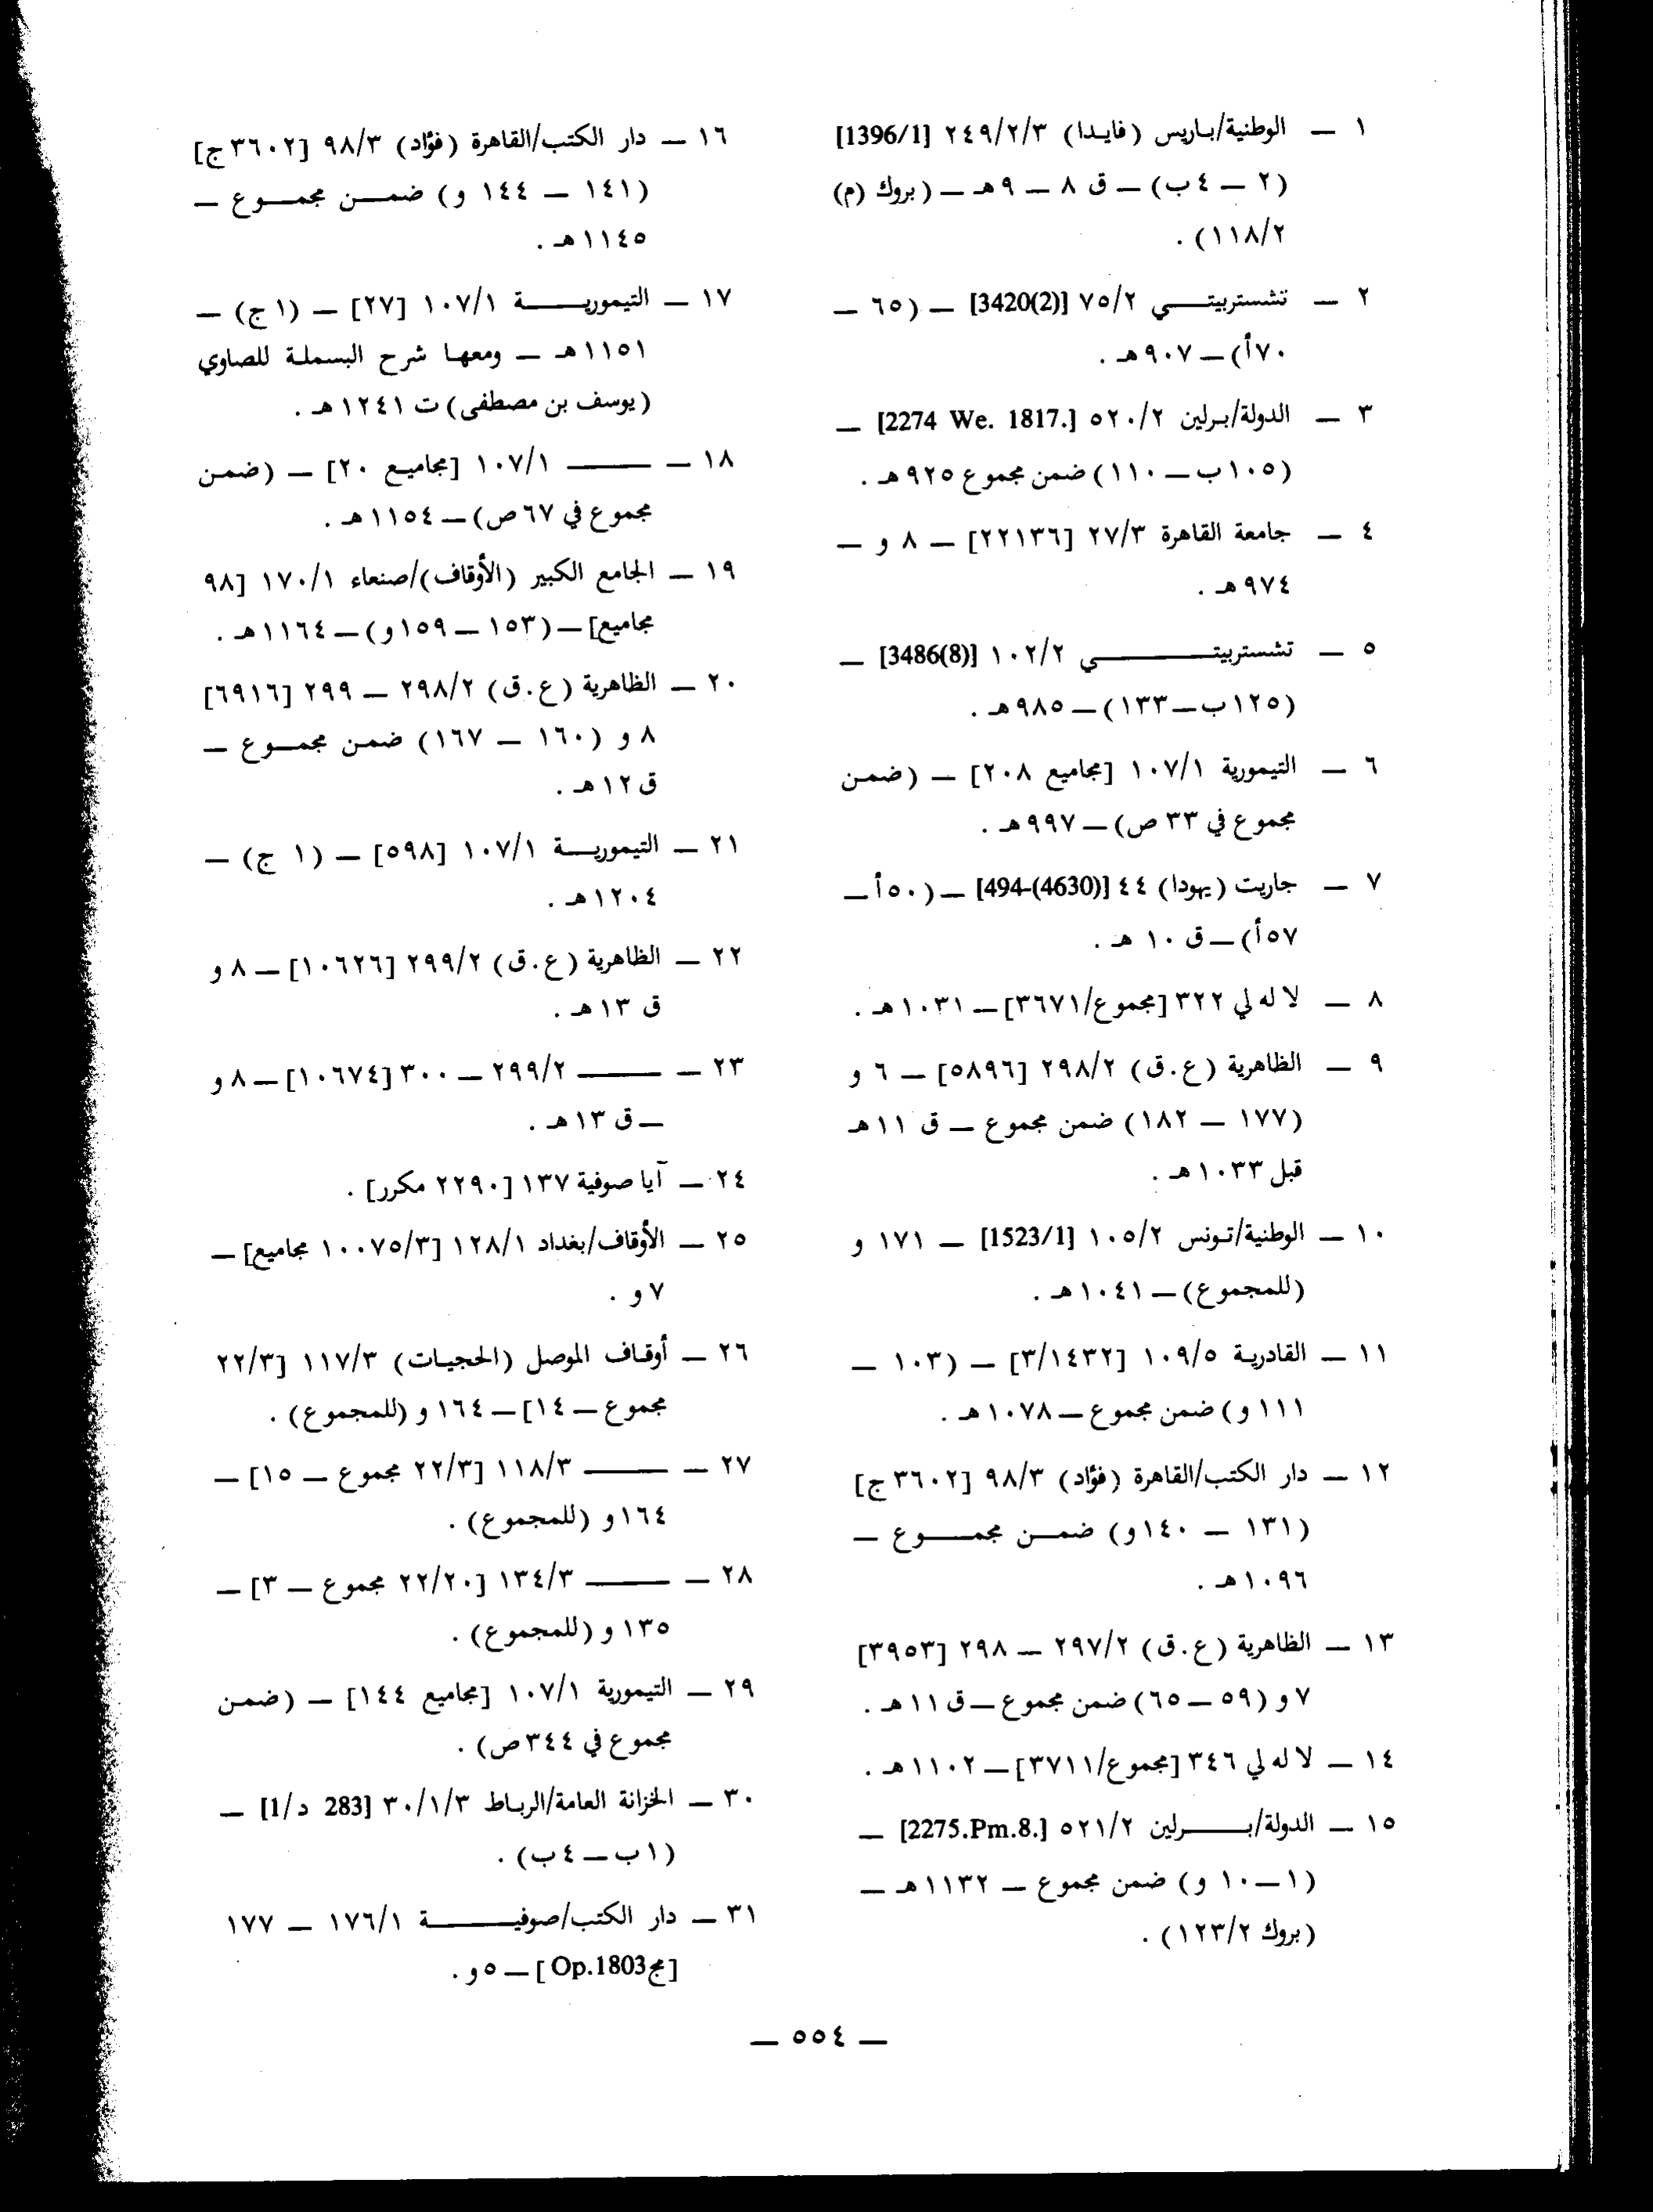 ١ — الوطنية/باريس (فايدا) ٢٤٩/٢/٣ [1396/1]
(٢ — ٤ب) — ق ٨ — ٩هـ — (بروك (م)
١١٨/٢) .
٢ — تشستربيتي ٧٥/٢ [3420(2)] — (٦٥ —
٧٠أ) — ٩٠٧هـ .
٣ — الدولة/برلين ٥٢٠/٢ [2274 We. 1817.] —
(١٠٥ب — ١١٠) ضمن مجموع ٩٢٥هـ .
٤ — جامعة القاهرة ٢٧/٣ [٢٢١٣٦] — ٨ و —
٩٧٤هـ .
٥ — تشستربيتي ١٠٢/٢ [3486(8)] —
(١٢٥ب — ١٣٣) — ٩٨٥هـ .
٦ — التيمورية ١٠٧/١ [مجاميع ٢٠٨] — (ضمن
مجموع في ٣٣ ص) — ٩٩٧هـ .
٧ — جاريت (يهودا) ٤٤ [494-(4630)] — (٥٠أ —
٥٧أ) — ق ١٠ هـ .
٨ — لا له لي ٣٢٢ [مجموع/٣٦٧١] — ١٠٣١هـ .
٩ — الظاهرية (ع.ق) ٢٩٨/٢ [٥٨٩٦] — ٦ و
(١٧٧ — ١٨٢) ضمن مجموع — ق ١١هـ
قبل ١٠٣٣هـ .
١٠ — الوطنية/تونس ١٠٥/٢ [1523/1] — ١٧١ و
(للمجموع) — ١٠٤١هـ .
١١ — القادرية ١٠٩/٥ [٣/١٤٣٢] — (١٠٣ —
١١١ و) ضمن مجموع — ١٠٧٨هـ .
١٢ — دار الكتب/القاهرة (فؤاد) ٩٨/٣ [٣٦٠٢ج]
(١٣١ — ١٤٠و) ضمن مجموع —
١٠٩٦هـ .
١٣ — الظاهرية (ع.ق) ٢٩٧/٢ — ٢٩٨ [٣٩٥٣]
٧ و (٥٩ — ٦٥) ضمن مجموع — ق ١١هـ .
١٤ — لا له لي ٣٤٦ [مجموع/٣٧١١] — ١١٠٢هـ .
١٥ — الدولة/برلين ٥٢١/٢ [2275.Pm.8.] —
(١ — ١٠ و) ضمن مجموع — ١١٣٢هـ —
(بروك ١٢٣/٢) .
١٦ — دار الكتب/القاهرة (فؤاد) ٩٨/٣ [٣٦٠٢ج]
(١٤١ — ١٤٤ و) ضمن مجموع —
١١٤٥هـ .
١٧ — التيمورية ١٠٧/١ [٢٧] — (١ ج) —
١١٥١هـ — ومعها شرح البسملة للصاوي
(يوسف بن مصطفى) ت ١٢٤١هـ .
١٨ — ——— ١٠٧/١ [مجاميع ٢٠] — (ضمن
مجموع في ٦٧ ص) — ١١٥٤هـ .
١٩ — الجامع الكبير (الأوقاف)/صنعاء ١٧٠/١ [٩٨
مجاميع] — (١٥٣ — ١٥٩و) — ١١٦٤هـ .
٢٠ — الظاهرية (ع.ق) ٢٩٨/٢ — ٢٩٩ [٦٩١٦]
٨ و (١٦٠ — ١٦٧) ضمن مجموع —
ق ١٢هـ .
٢١ — التيمورية ١٠٧/١ [٥٩٨] — (١ ج) —
١٢٠٤هـ .
٢٢ — الظاهرية (ع.ق) ٢٩٩/٢ [١٠٦٢٦] — ٨ و
ق ١٣هـ .
٢٣ — ——— ٢٩٩/٢ — ٣٠٠ [١٠٦٧٤] — ٨ و
— ق ١٣هـ .
٢٤ — آيا صوفية ١٣٧ [٢٢٩٠ مكرر] .
٢٥ — الأوقاف/بغداد ١٢٨/١ [١٠٠٧٥/٣ مجاميع] —
٧ و .
٢٦ — أوقاف الموصل (الحجيات) ١١٧/٣ [٢٢/٣
مجموع — ١٤] — ١٦٤ و (للمجموع) .
٢٧ — ——— ١١٨/٣ [٢٢/٣ مجموع — ١٥] —
١٦٤و (للمجموع) .
٢٨ — ——— ١٣٤/٣ [٢٢/٢٠ مجموع — ٣] —
١٣٥ و (للمجموع) .
٢٩ — التيمورية ١٠٧/١ [مجاميع ١٤٤] — (ضمن
مجموع في ٣٤٤ص) .
٣٠ — الخزانة العامة/الرباط ٣٠/١/٣ [283 د/1] —
(١ب — ٤ب) .
٣١ — دار الكتب/صوفية ١٧٦/١ — ١٧٧
[مج Op.1803] — ٥ و .
— ٥٥٤ —